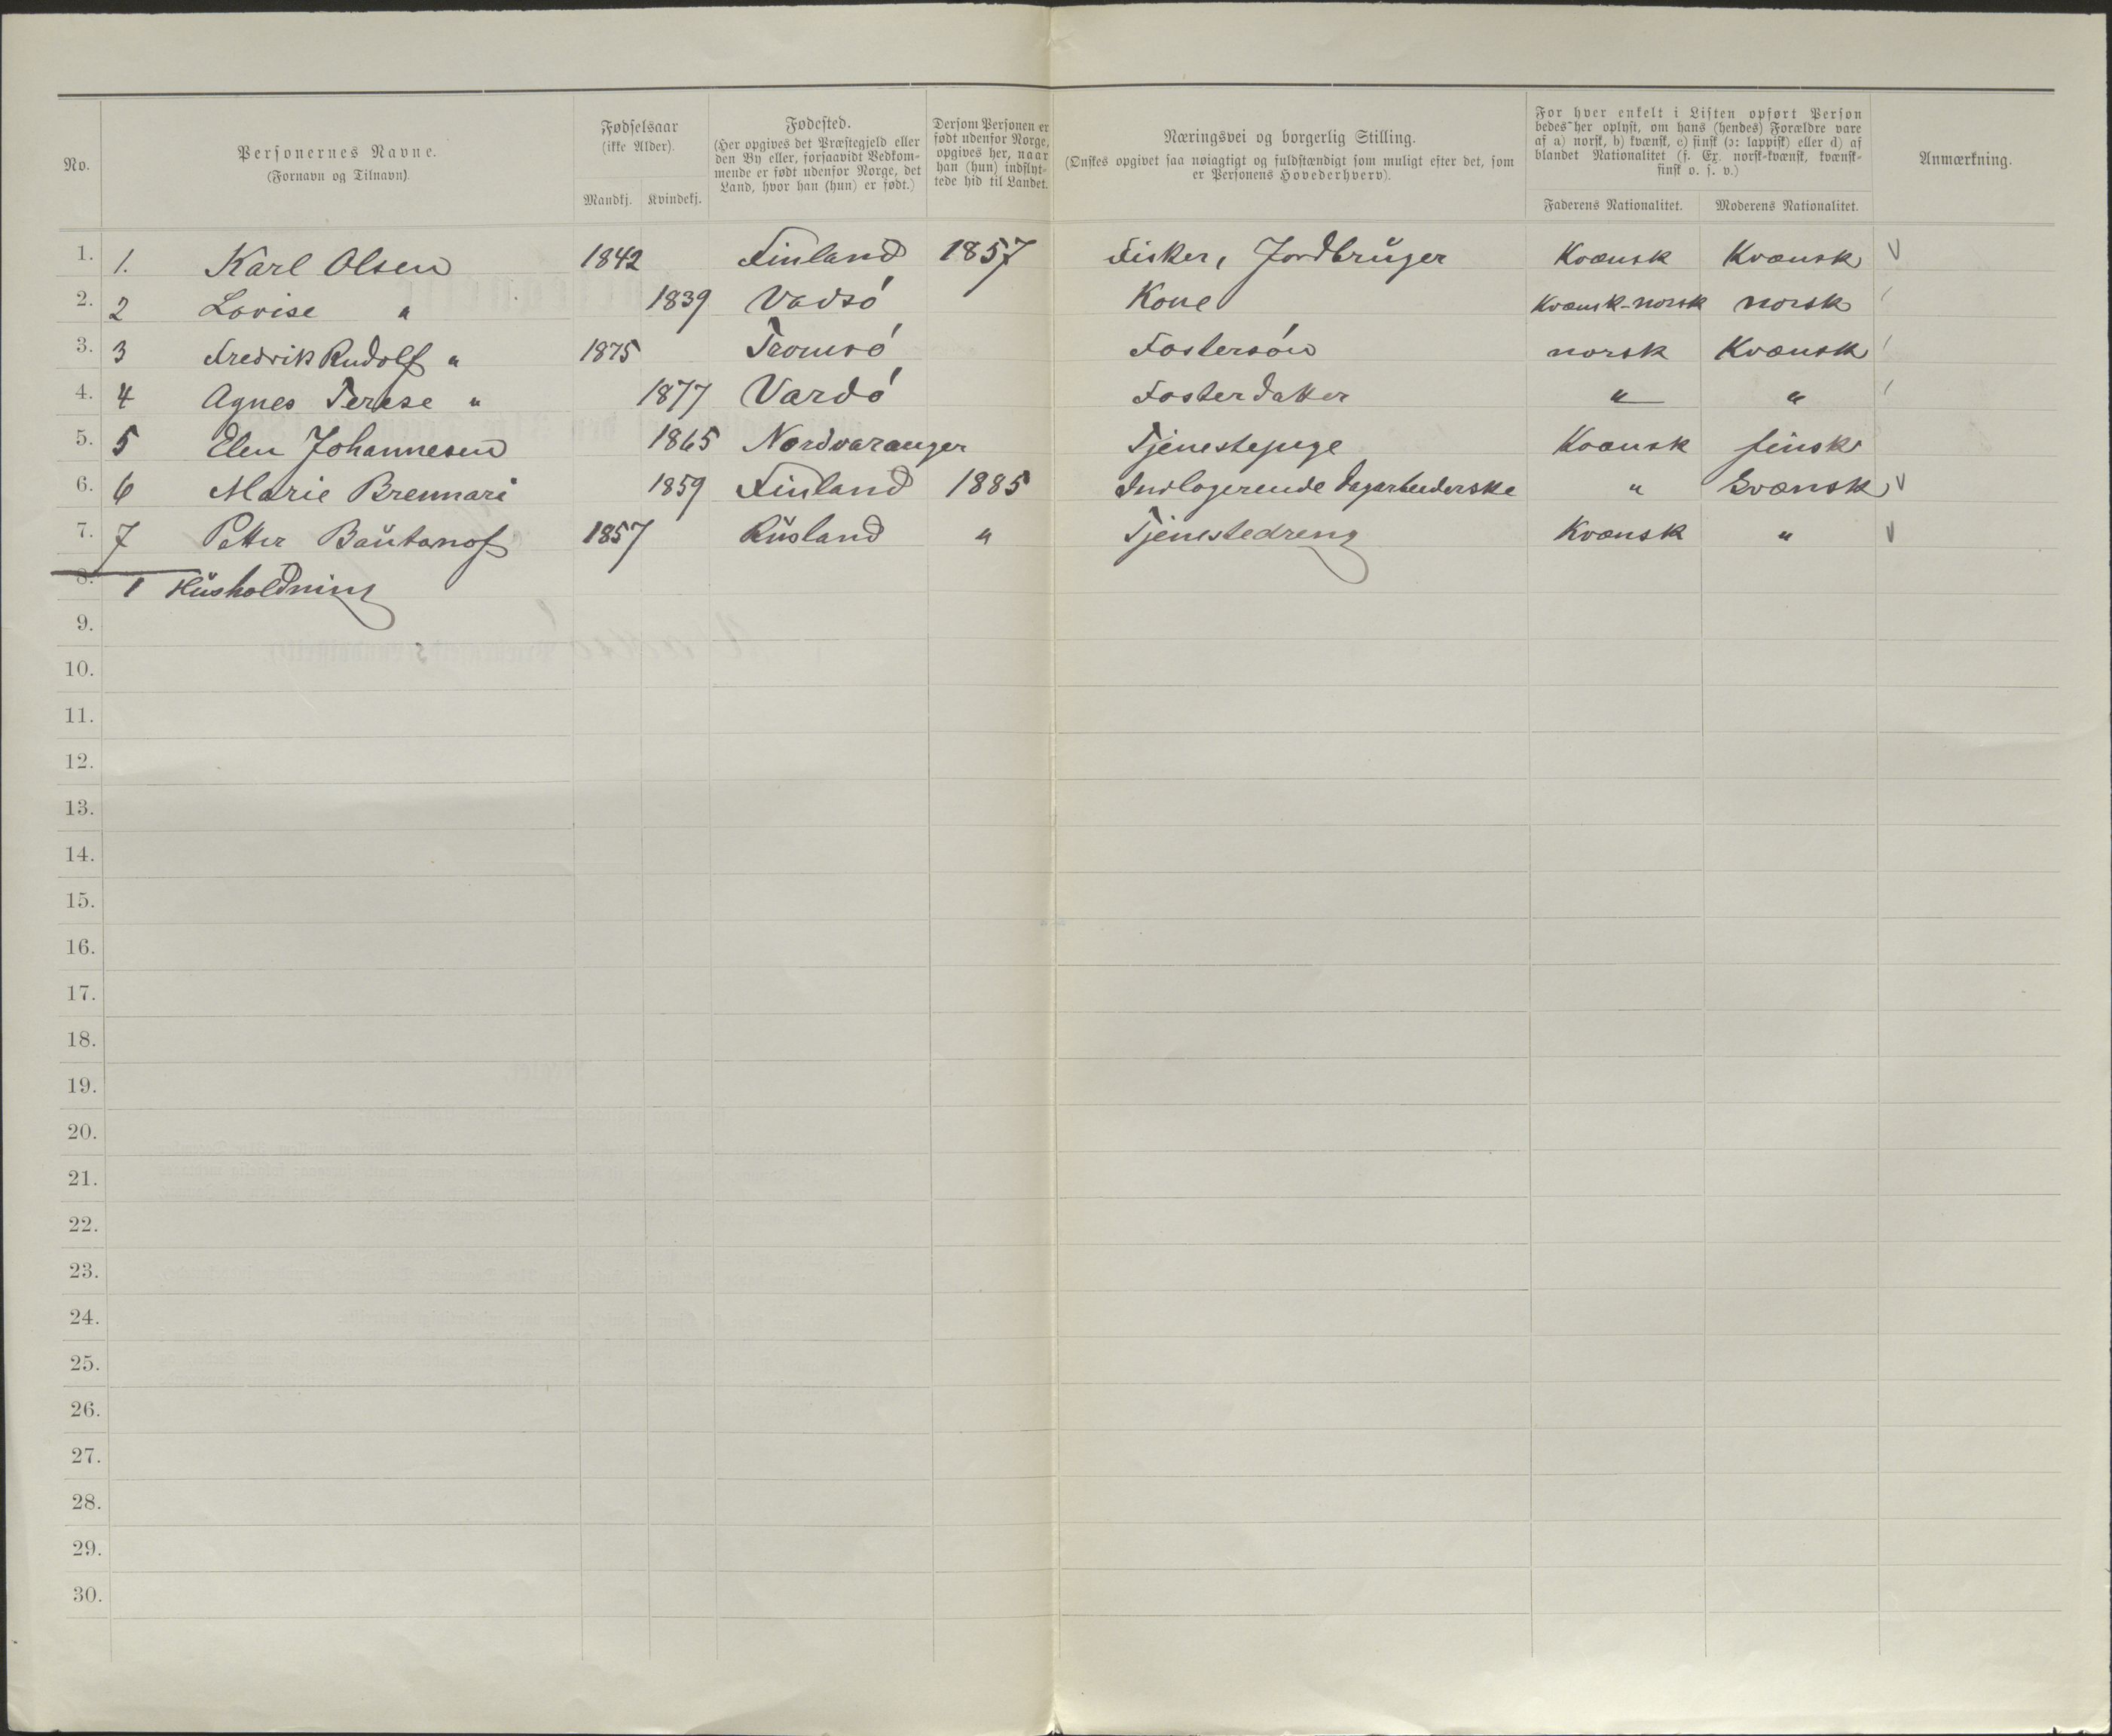 No. Personernes Navne. (Fornavn og Tilnavn). Fødselsaar (ikke Alder). Mandkj. Kvindekj. Fødested. (Her opgives det Præstegjeld eller den By eller, forsaavidt Vedkommende er født udenfor Norge, det Land, hvor han (hun) er født.) Dersom Personen er født udenfor Norge, opgives her, naar han (hun) indflyttede hid til Landet. Næringsvei og borgerlig Stilling. (Ønskes opgivet saa nøiagtigt og fuldstændigt som muligt efter det, som er Personens Hovederhverv). For hver enkelt i Listen opført Person bedes her oplyst, om hans (hendes) Forældre vare af a) norsk, b) kvænsk, c) finsk (ɔ: lappisk) eller d) af blandet Nationalitet (f. Ex. norsk-kvænsk, kvænsk-finsk o. s. v.) Faderens Nationalitet. Moderens Nationalitet. Anmærkning.
1. 1. Karl Olsen 1842 Finland 1857 Fisker, Jordbrŭger Kvænsk Kvænsk V
2. 2 Lovise " 1839 Vadsó Kone Kvænsk-norsk norsk /
3. 3 Fredrik Rudolf " 1875 Tromsó Fostersón norsk Kvænsk /
4. 4 Agnes Terese " 1877 Vardó Fosterdatter " " /
5. 5 Elen Johannesen 1865 Nordvaranger Tjenestepige Kvænsk finsk
6. 6 Marie Brennari 1859 Finland 1885 Indlogerende Dagarbeiderske " Kvænsk V
7. 7 Petter Baŭtanof 1857 Rŭsland " Tjenestedreng Kvænsk " V
8. 1 Hŭsholdning
9.
10.
11.
12.
13.
14.
15.
16.
17.
18.
19.
20.
21.
22.
23.
24.
25.
26.
27.
28.
29.
30.